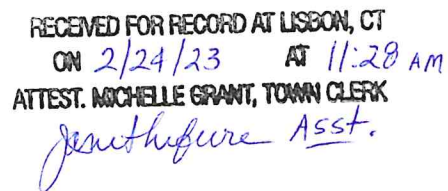 RECEIVED FOR RECORD AT LISBON, CT
ON 2/24/23 AT 11:28 AM
ATTEST. MICHELLE GRANT, TOWN CLERK
Asst.